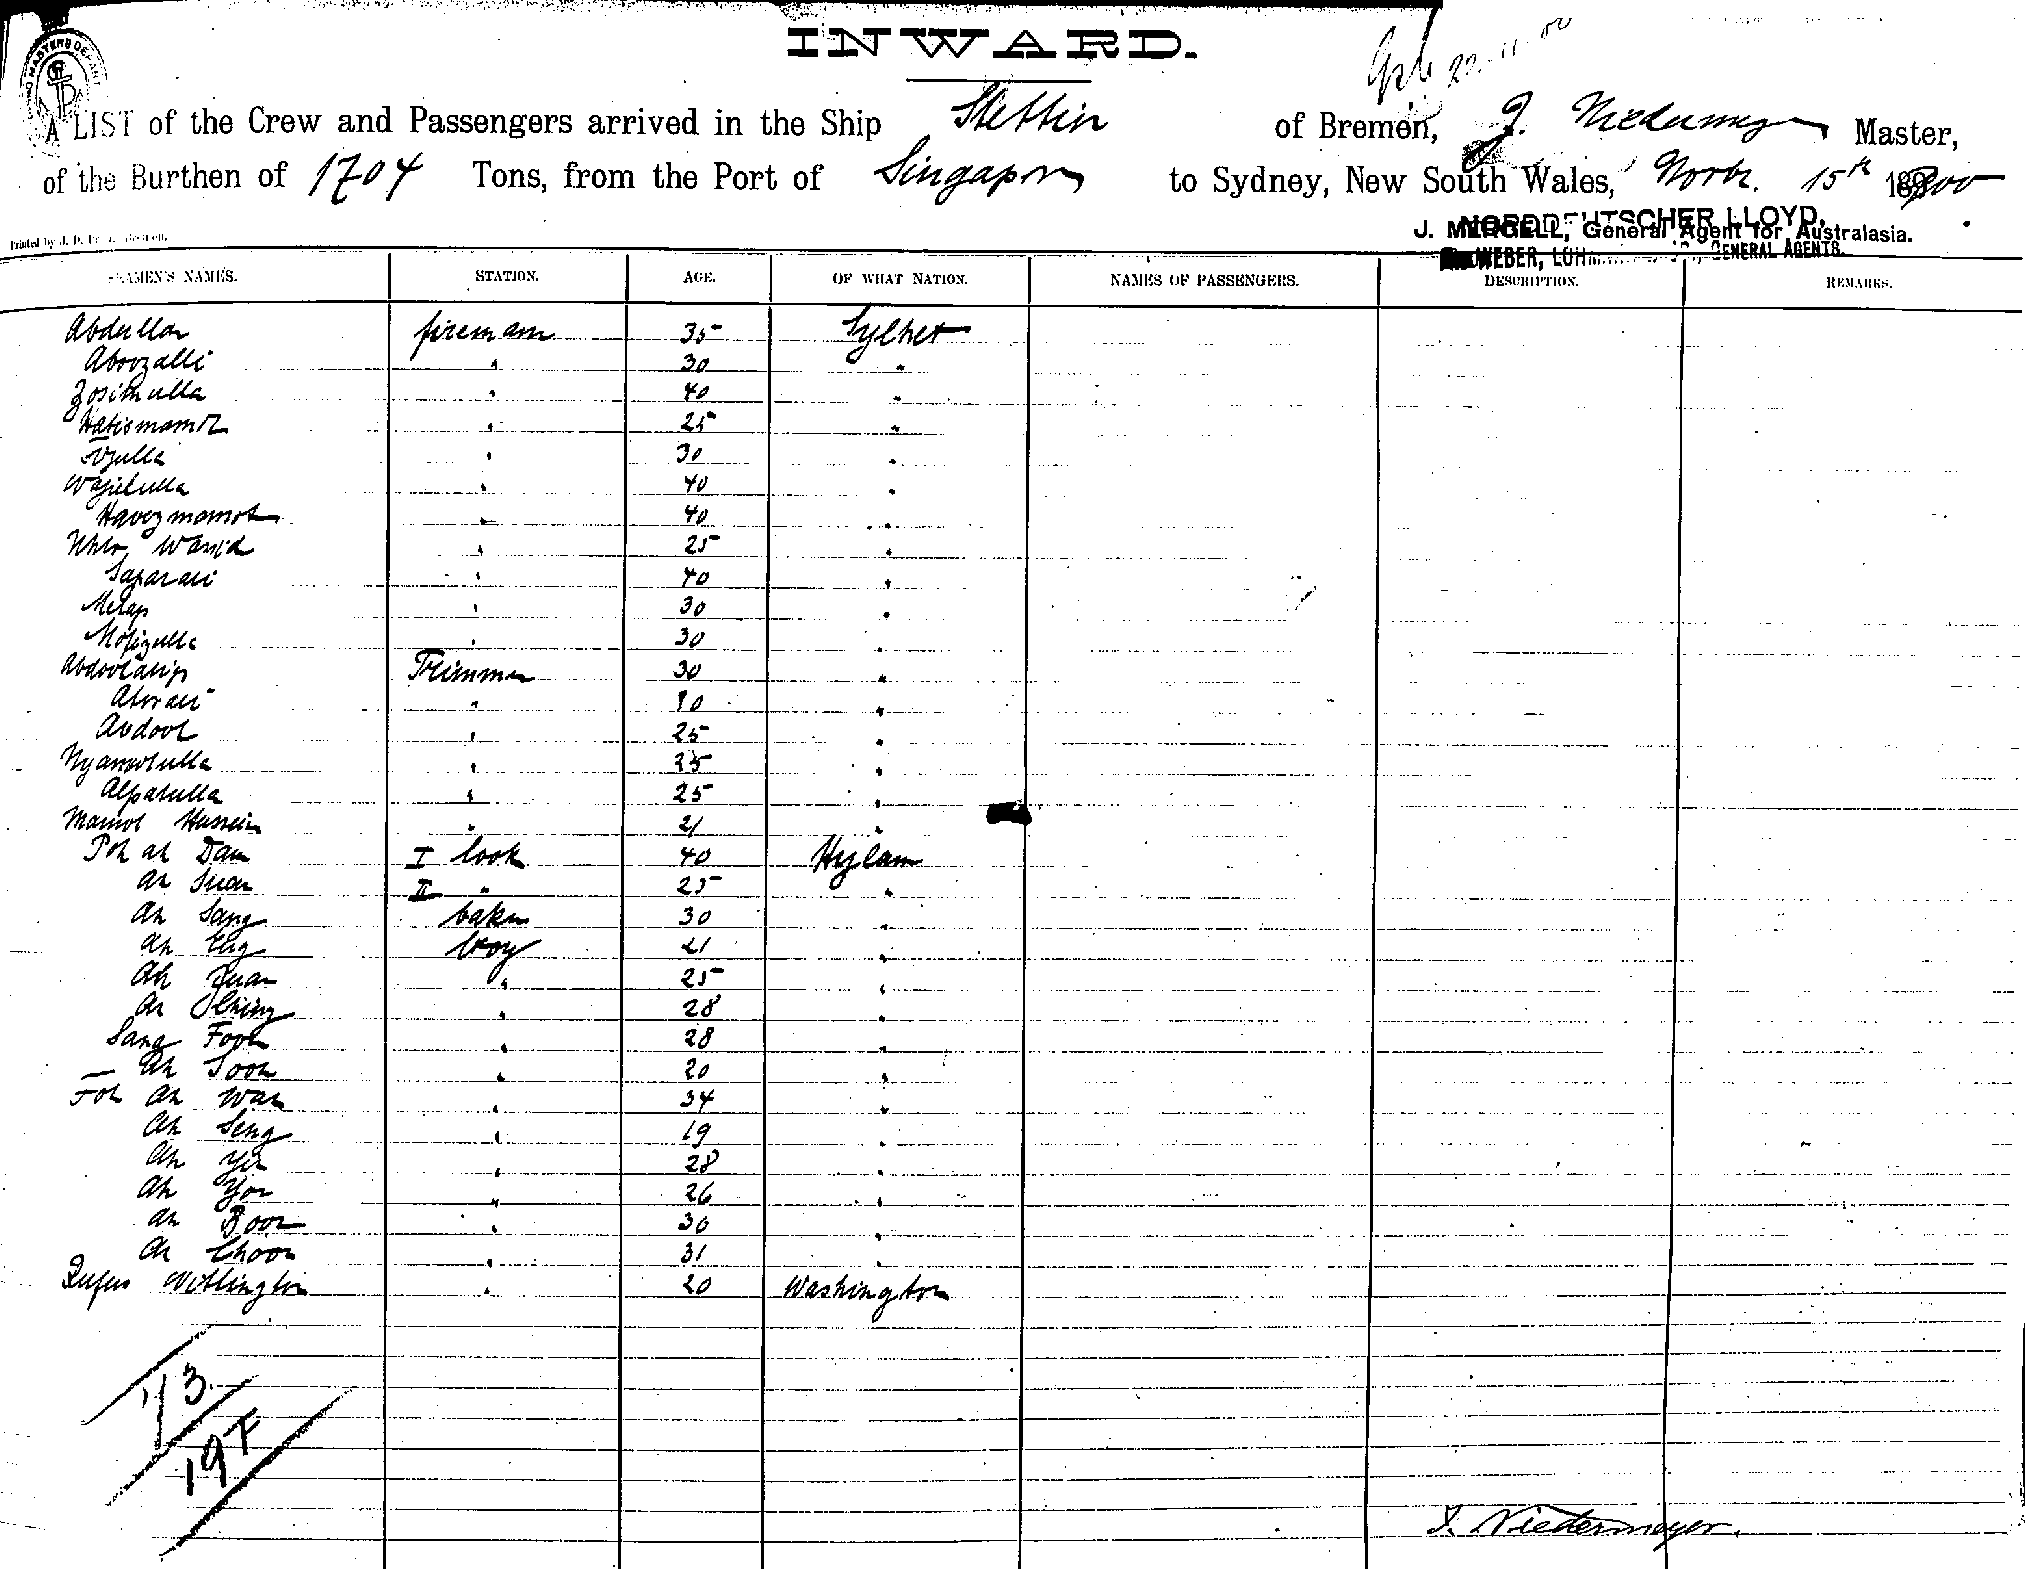 INWARD.
A LIST of the Crew and Passengers arrived in the Ship Stettin of Bremen, J. Niedermeyer Master,
of the Burthen of 1704 Tons, from the Port of Singapore to Sydney, New South Wales, Novbr. 15th 1900
NORDDEUTSCHER LLOYD,
J. MERGELL, General Agent for Australasia.
WEBER, LOH GENERAL AGENTS.
Printed by J. D.
SEAMEN'S NAMES. STATION. AGE. OF WHAT NATION. NAMES OF PASSENGERS. DESCRIPTION. REMARKS.
Abdulla fireman 35 Sylhet
Aboozalli " 30 "
Zosimulla " 40 "
Hatismamot " 25 "
" 30 "
Wasilulla " 40 "
Havezmamot " 40 "
Wasid " 25 "
Safarali " 40 "
Merap " 30 "
Mofizulla " 30 "
Trimmer 30 "
" "
Abdool " 25 "
Nyamotulla " 25 "
Alfatulla " 25 "
Mamot Hussein " 21 "
Poh ah Dam I Cook 40 Hylam
ah Suan II " 25 "
Ah Sang baker 30 "
Ah boy 21 "
Ah " 25 "
Ah Ching " 28 "
Sang Fook " 28 "
Ah Soon " 20 "
Foh Ah Wah " 34 "
Ah Seng " 19 "
Ah " 28 "
Ah " 26 "
Ah Boon " 30 "
Ah Choon " 31 "
Rufus Wittlington " 20 Washington
113
197
J. Niedermeyer.